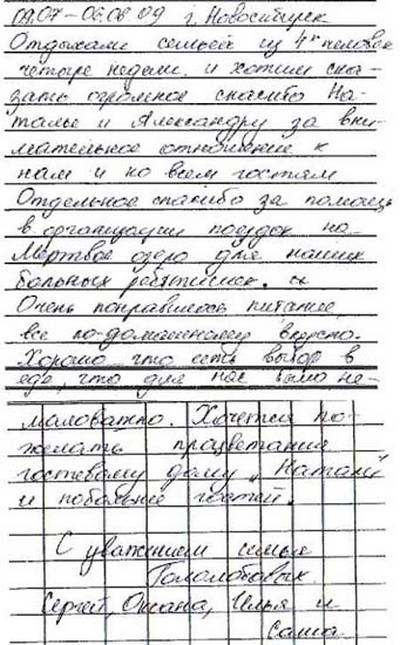 09.07-06.08 09 г. Новосибирск
Отдыхали семьёй из 4х человек
четыре недели. и хотим ска-
зать огромное спасибо На-
талье и Александру за вни-
мательное отношение к
нам и ко всем гостям
Отдельное спасибо за помощь
в организации поездок на
Мёртвое озеро для наших
больных ребятишек.
Очень понравилось питание,
все по-домашнему вкусно.
Хорошо что есть выбор в
еде, что для нас было не-
маловажно. Хочется по-
желать процветания
гостевому дому "Натали"
и побольше гостей.
С уважением семья
Гололобовых
Сергей, Оксана, Илья и
Саша